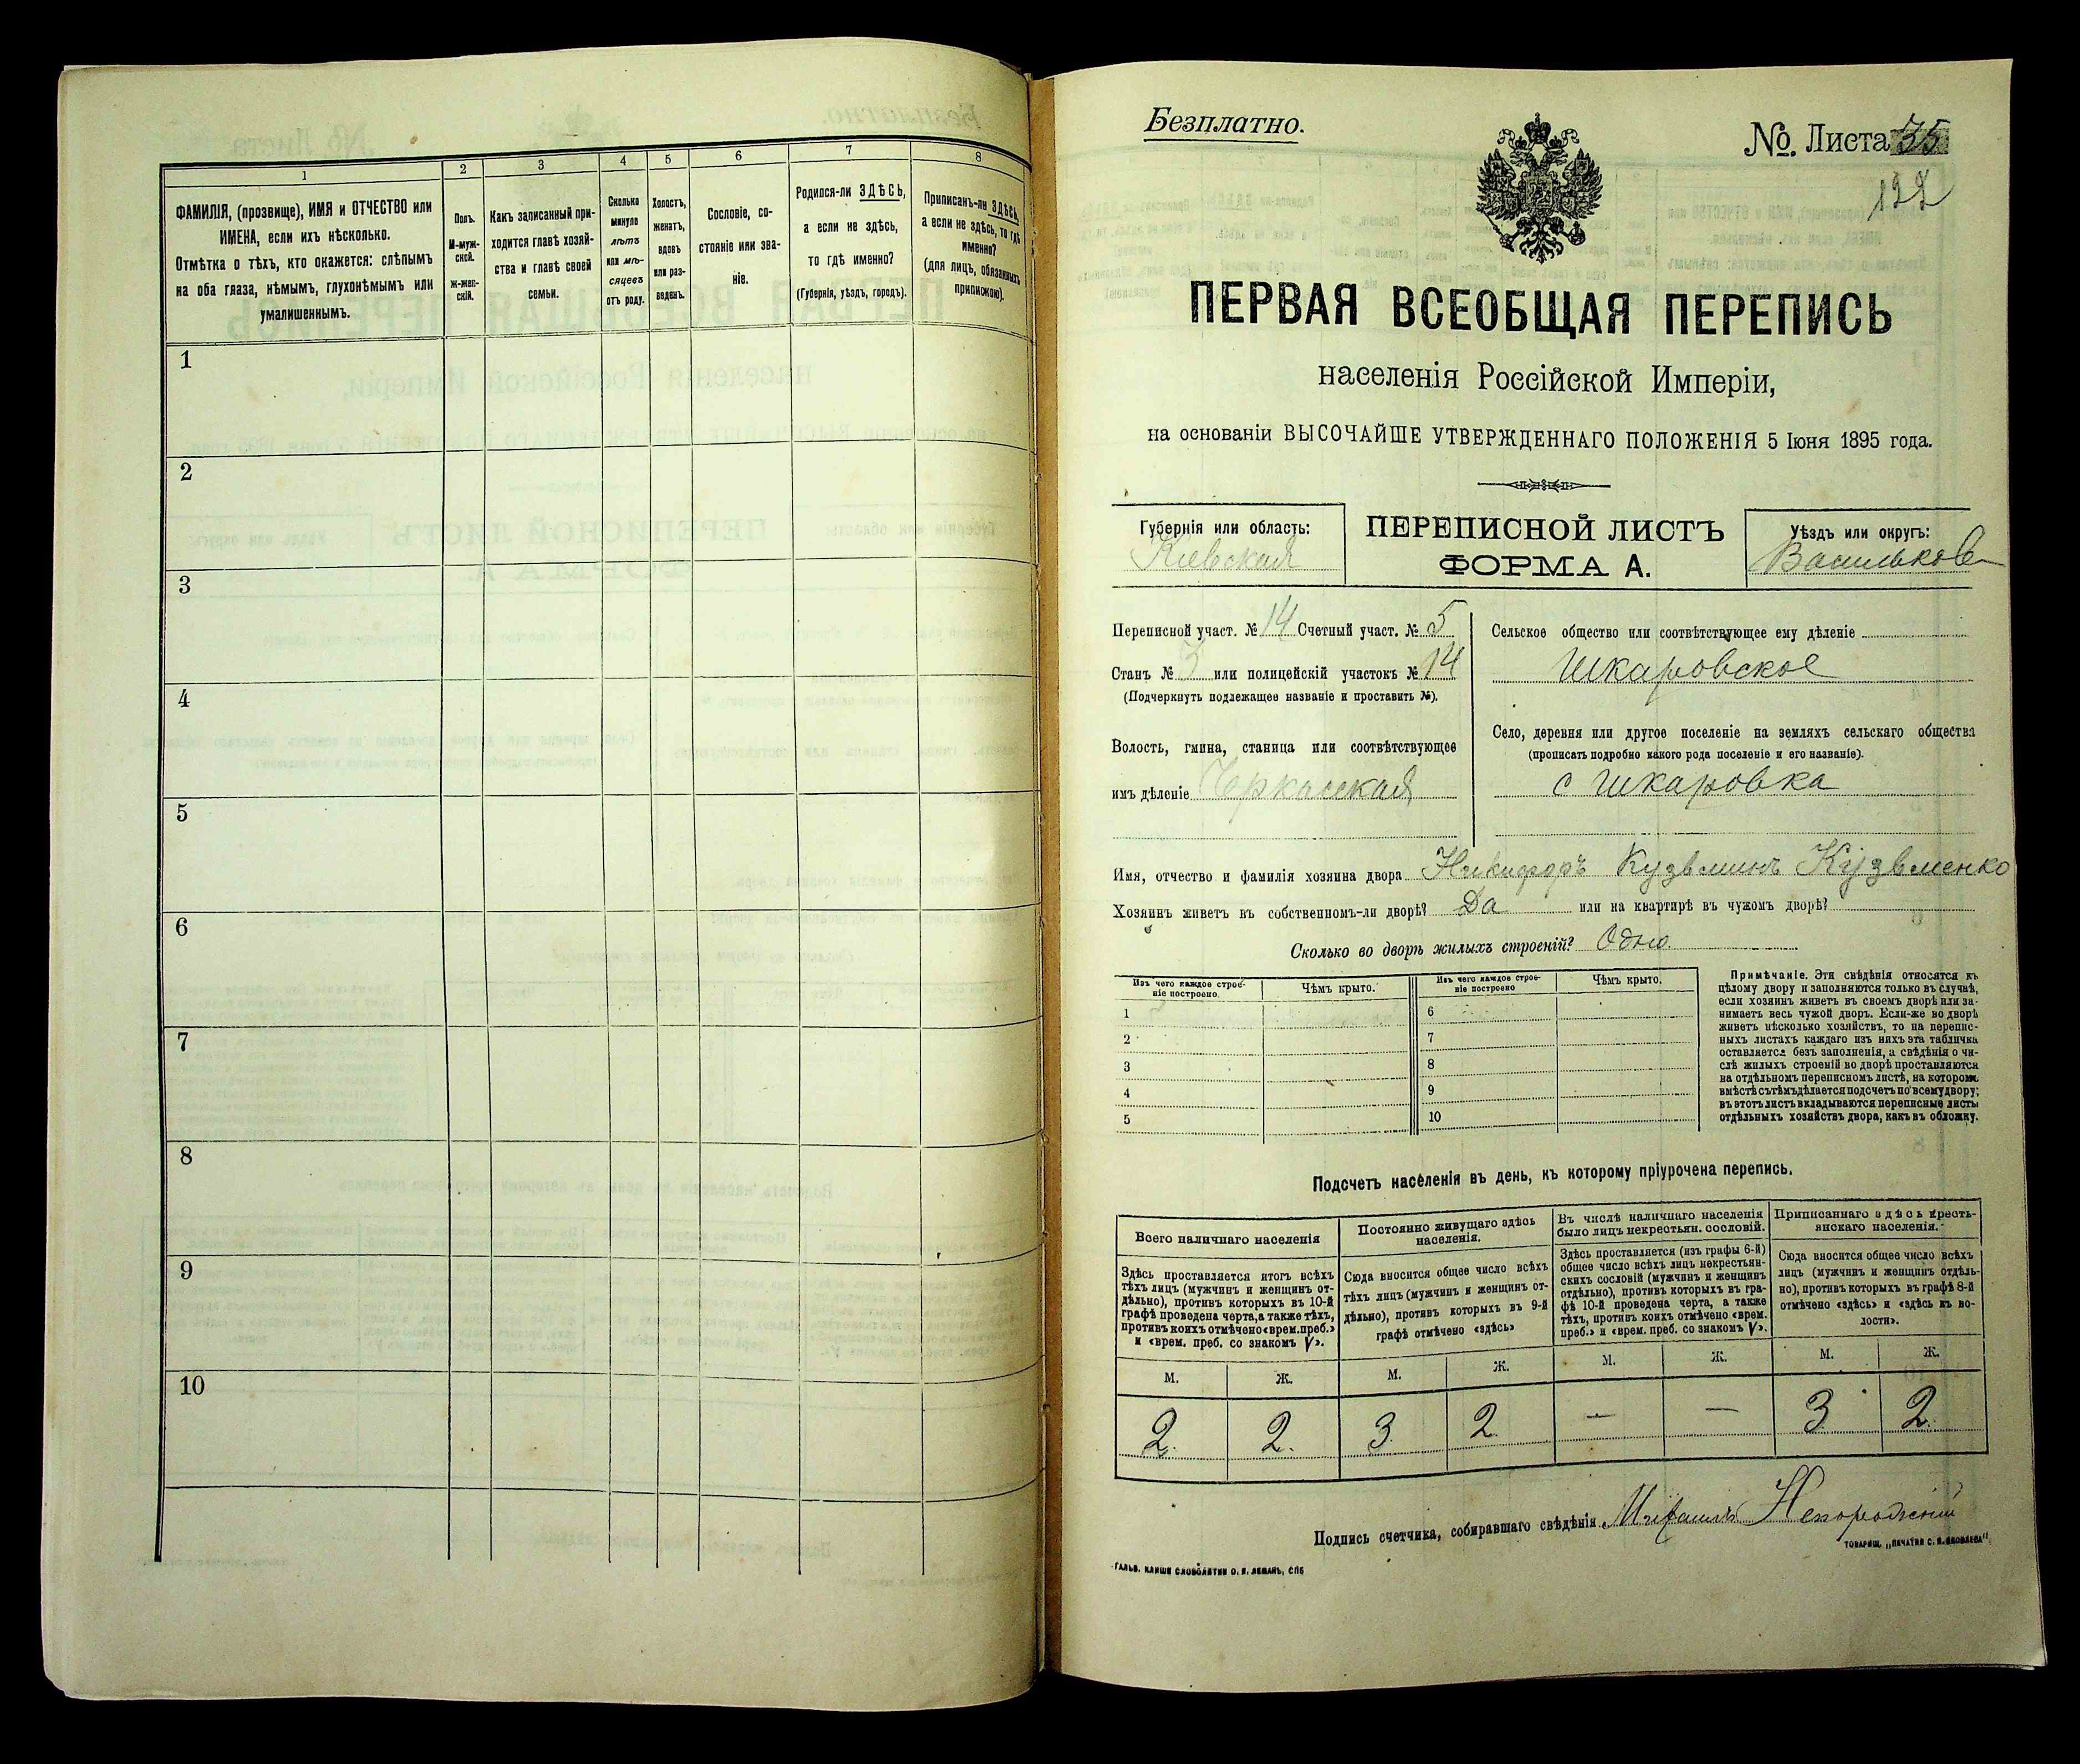 1
2
3
4
5
6
7
8
ФАМИЛІЯ, (прозвище), ИМЯ и ОТЧЕСТВО или
ИМЕНА, если ихъ нѣсколько.
Отмѣтка о тѣхъ, кто окажется: слѣпымъ
на оба глаза, нѣмымъ, глухонѣмымъ или
умалишеннымъ.
Полъ.
М-муж-
ской.
Ж-жен-
скій.
Какъ записанный при-
ходится главѣ хозяй-
ства и главѣ своей
семьи.
Сколько
минуло
лѣтъ
или мѣ-
сяцевъ
отъ роду.
Холостъ,
женатъ,
вдовъ
или раз-
веденъ.
Сословіе, со-
стояніе или зва-
ніе.
Родился-ли ЗДѢСЬ,
а если не здѣсь,
то гдѣ именно?
(Губернія, уѣздъ, городъ).
Приписанъ-ли ЗДѢСЬ,
а если не здѣсь, то гдѣ
именно?
(для лицъ, обязанныхъ
припискою).
1
2
3
4
5
6
7
8
9
10
Безплатно.
№. Листа 35
ПЕРВАЯ ВСЕОБЩАЯ ПЕРЕПИСЬ
населенія Россійской Имперіи,
на основаніи ВЫСОЧАЙШЕ УТВЕРЖДЕННАГО ПОЛОЖЕНІЯ 5 Іюня 1895 года.
Губернія или область:
Кіевская
ПЕРЕПИСНОЙ ЛИСТЪ
ФОРМА А.
Уѣздъ или округъ:
Васильков
Переписной участ. № 14 Счетный участ. № 5
Станъ № 3 или полицейскій участокъ № 14
(Подчеркнуть подлежащее названіе и проставить №).
Волость, гмина, станица или соотвѣтствующее
имъ дѣленіе Черкасская
Сельское общество или соотвѣтствующее ему дѣленіе
Шкаровское
Село, деревня или другое поселеніе на земляхъ сельскаго общества
(прописать подробно какого рода поселеніе и его названіе).
с Шкаровка
Имя, отчество и фамилія хозяина двора Никифоръ Кузьминъ Кузьменко
Хозяинъ живетъ въ собственномъ-ли дворѣ? Да или на квартирѣ въ чужомъ дворѣ?
Сколько во дворѣ жилыхъ строеній? Одно.
Изъ чего каждое строе-
ніе построено.
Чѣмъ крыто.
Изъ чего каждое строе-
ніе построено
Чѣмъ крыто.
1
2
3
4
5
6
7
8
9
10
Примѣчаніе. Эти свѣдѣнія относятся къ
цѣлому двору и заполняются только въ случаѣ,
если хозяинъ живетъ въ своемъ дворѣ или за-
нимаетъ весь чужой дворъ. Если-же во дворѣ
живетъ нѣсколько хозяйствъ, то на перепис-
ныхъ листахъ каждаго изъ нихъ эта табличка
оставляется безъ заполненія, а свѣдѣнія о чи-
слѣ жилыхъ строеній во дворѣ проставляются
на отдѣльномъ переписномъ листѣ, на которомъ
вмѣстѣ съ тѣмъ дѣлается подсчетъ по всему двору;
въ этотъ листъ вкладываются переписные листы
отдѣльныхъ хозяйствъ двора, какъ въ обложку.
Подсчетъ населенія въ день, къ которому пріурочена перепись.
Всего наличнаго населенія
Постоянно живущаго здѣсь
населенія.
Въ числѣ наличнаго населенія
было лицъ некрестьян. сословій.
Приписаннаго здѣсь кресть-
янскаго населенія.
Здѣсь проставляется итогъ всѣхъ
тѣхъ лицъ (мужчинъ и женщинъ от-
дѣльно), противъ которыхъ въ 10-й
графѣ проведена черта, а также тѣхъ,
противъ коихъ отмѣчено «врем. преб.»
и «врем. преб. со знакомъ V».
Сюда вносится общее число всѣхъ
тѣхъ лицъ (мужчинъ и женщинъ от-
дѣльно), противъ которыхъ въ 9-й
графѣ отмѣчено «здѣсь»
Здѣсь проставляется (изъ графы 6-й)
общее число всѣхъ лицъ некрестьян-
скихъ сословій (мужчинъ и женщинъ
отдѣльно), противъ которыхъ въ гра-
фѣ 10-й проведена черта, а также
тѣхъ, противъ коихъ отмѣчено «врем.
преб.» и «врем. преб. со знакомъ V».
Сюда вносится общее число всѣхъ
лицъ (мужчинъ и женщинъ отдѣль-
но), противъ которыхъ въ графѣ 8-й
отмѣчено «здѣсь» и «здѣсь къ во-
лости».
М. Ж. М. Ж. М. Ж. М. Ж.
2. 2. 3. 2 — — 3. 2.
Подпись счетчика, собиравшаго свѣдѣнія
ГАЛЬВ. КЛИШЕ СЛОВОЛИТНИ О. И. ЛЕМАНЪ, СПБ
ТОВАРИЩ. „ПЕЧАТНЯ С. П. ЯКОВЛЕВА".